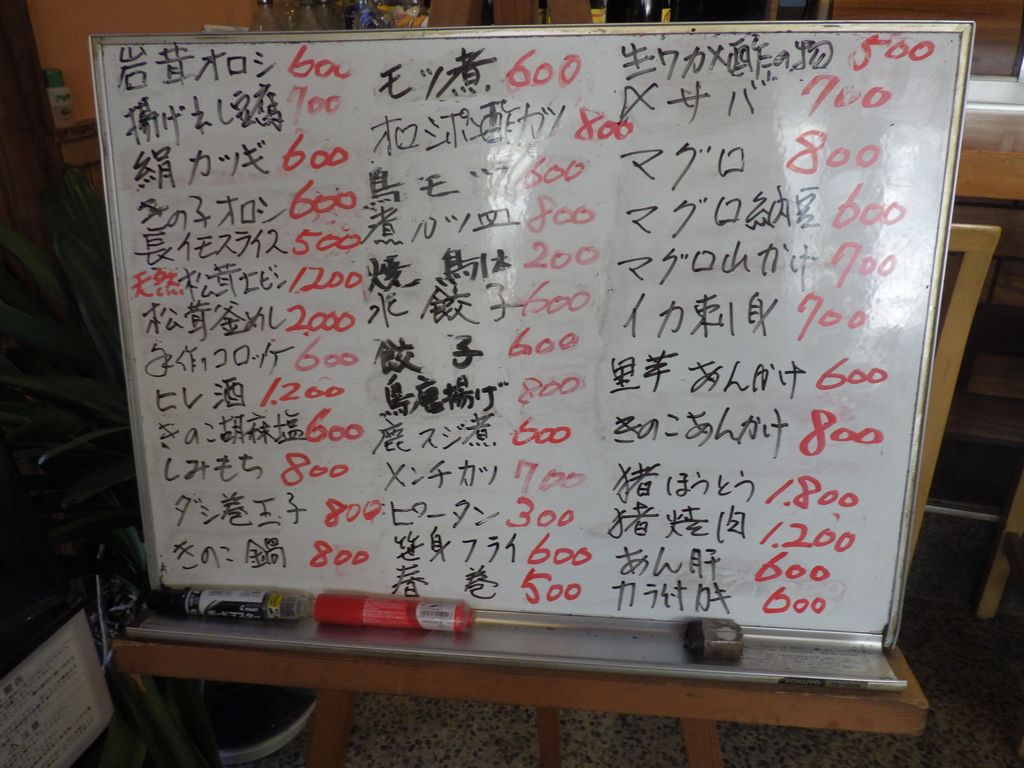 岩茸オロシ 600
揚げ出し豆腐 700
絹カツギ 600
きの子オロシ 600
長イモスライス 500
天然松茸土ビン 1200
松茸釜めし 2,000
手作りコロッケ 600
ヒレ酒 1.200
きのこ胡麻塩 600
しみもち 800
ダシ巻玉子 800
きのこ鍋 800
モツ煮 600
オロシポン酢カツ 800
鳥モツ煮 600
カツ皿 800
焼鳥1本 200
水餃子 600
餃子 600
鳥唐揚げ 800
鹿スジ煮 600
メンチカツ 700
ピータン 300
笹身フライ 600
春巻 500
生ワカメ酢の物 500
〆サバ 700
マグロ 800
マグロ納豆 600
マグロ山かけ 700
イカ刺し身 700
里芋あんかけ 600
きのこあんかけ 800
猪ほうとう 1.800
猪焼肉 1.200
あん肝 600
カラ付カキ 600